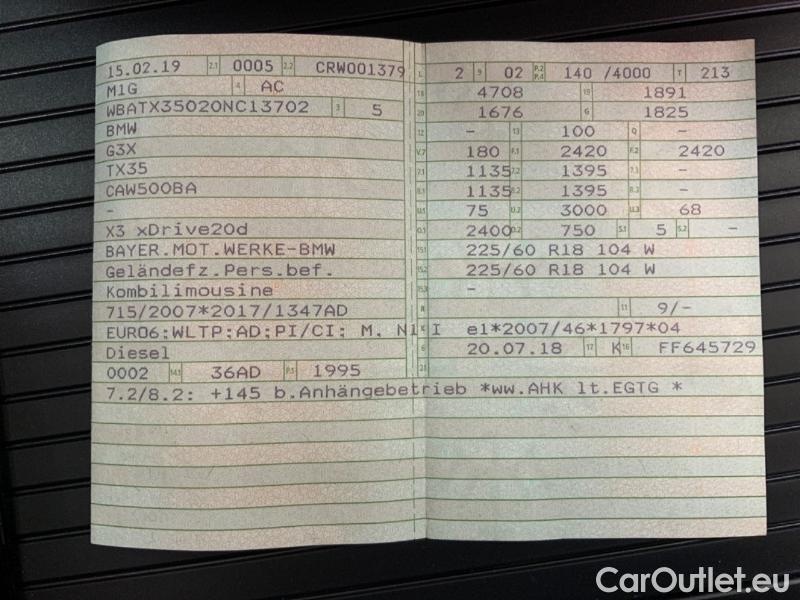 15.02.19 2.1 0005 2.2 CRW001379
M1G 4 AC
WBATX35020NC13702 3 5
BMW
G3X
TX35
CAW500BA
-
X3 xDrive20d
BAYER.MOT.WERKE-BMW
Geländefz.Pers.bef.
Kombilimousine
715/2007*2017/1347AD
EURO6;WLTP;AD;PI/CI; M, N1 I K e1*2007/46*1797*04
Diesel
0002 14.1 36AD P.1 1995
7.2/8.2: +145 b.Anhängebetrieb *ww.AHK lt.EGTG *
L 2 9 02 P.2 P.4 140 /4000 T 213
18 4708 19 1891
20 1676 G 1825
12 - 13 100 Q -
V.7 180 F.1 2420 F.2 2420
7.1 1135 7.2 1395 7.3 -
8.1 1135 8.2 1395 8.3 -
U.1 75 U.2 3000 U.3 68
O.1 2400 O.2 750 S.1 5 S.2 -
15.1 225/60 R18 104 W
15.2 225/60 R18 104 W
15.3 -
R 11 9/-
6 20.07.18 17 K 16 FF645729
21
CarOutlet.eu